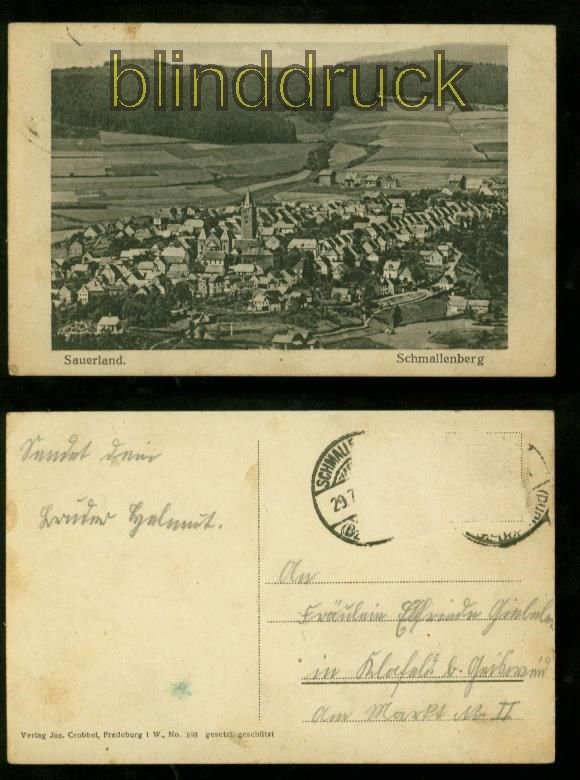 blinddruck
Sauerland.
Schmallenberg
Sendet dein
Bruder Helmut.
SCHMALLE
29.7
(Bz
An
Fräulein Elfriede
in Klafeld b. Geisweid
Am Markt No II
Verlag Jos. Crobbel, Fredeburg i W., No. 598 gesetzl. geschützt